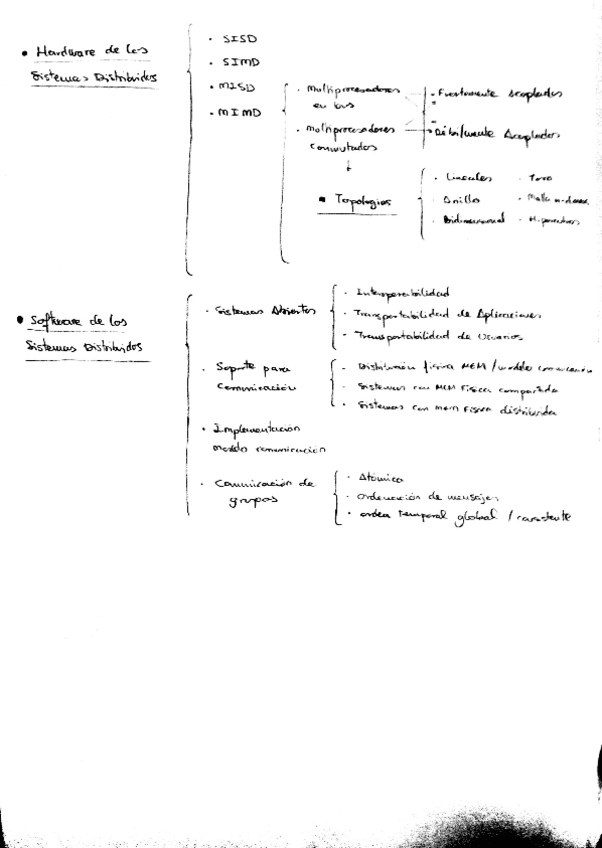 • Hardware de los
Sistemas Distribuidos
• SISD
• SIMD
• MISD
• MIMD
• Multiprocesadores
en bus
• multiprocesadores
conmutados
• Fuertemente acoplados
• Débilmente Acoplados
• Topologías
• Lineales
• Anillo
• Bidimensional
• Toro
• Malla
• Software de los
Sistemas Distribuidos
• Sistemas Abiertos
• Interoperabilidad
• Transportabilidad de Aplicaciones
• Transportabilidad de Usuarios
• Soporte para
comunicación
• Distribución física MEM / modelo comunicación
• Sistemas con MEM Física compartida
• Sistemas con mem Física distribuida
• Implementación
modelo comunicación
• Comunicación de
grupos
• Atómica
• ordenación de mensajes
• orden temporal global /